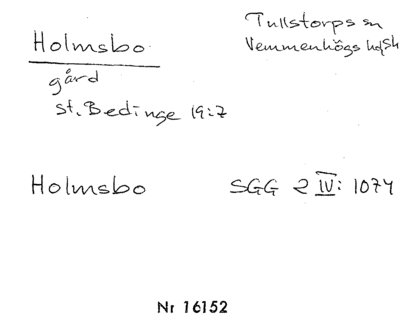 Holmsbo
gård
St. Bedinge 19:7
Tullstorps sn
Vemmenhögs hd Sk
Holmsbo
SGG 2 IV: 1074
Nr 16152